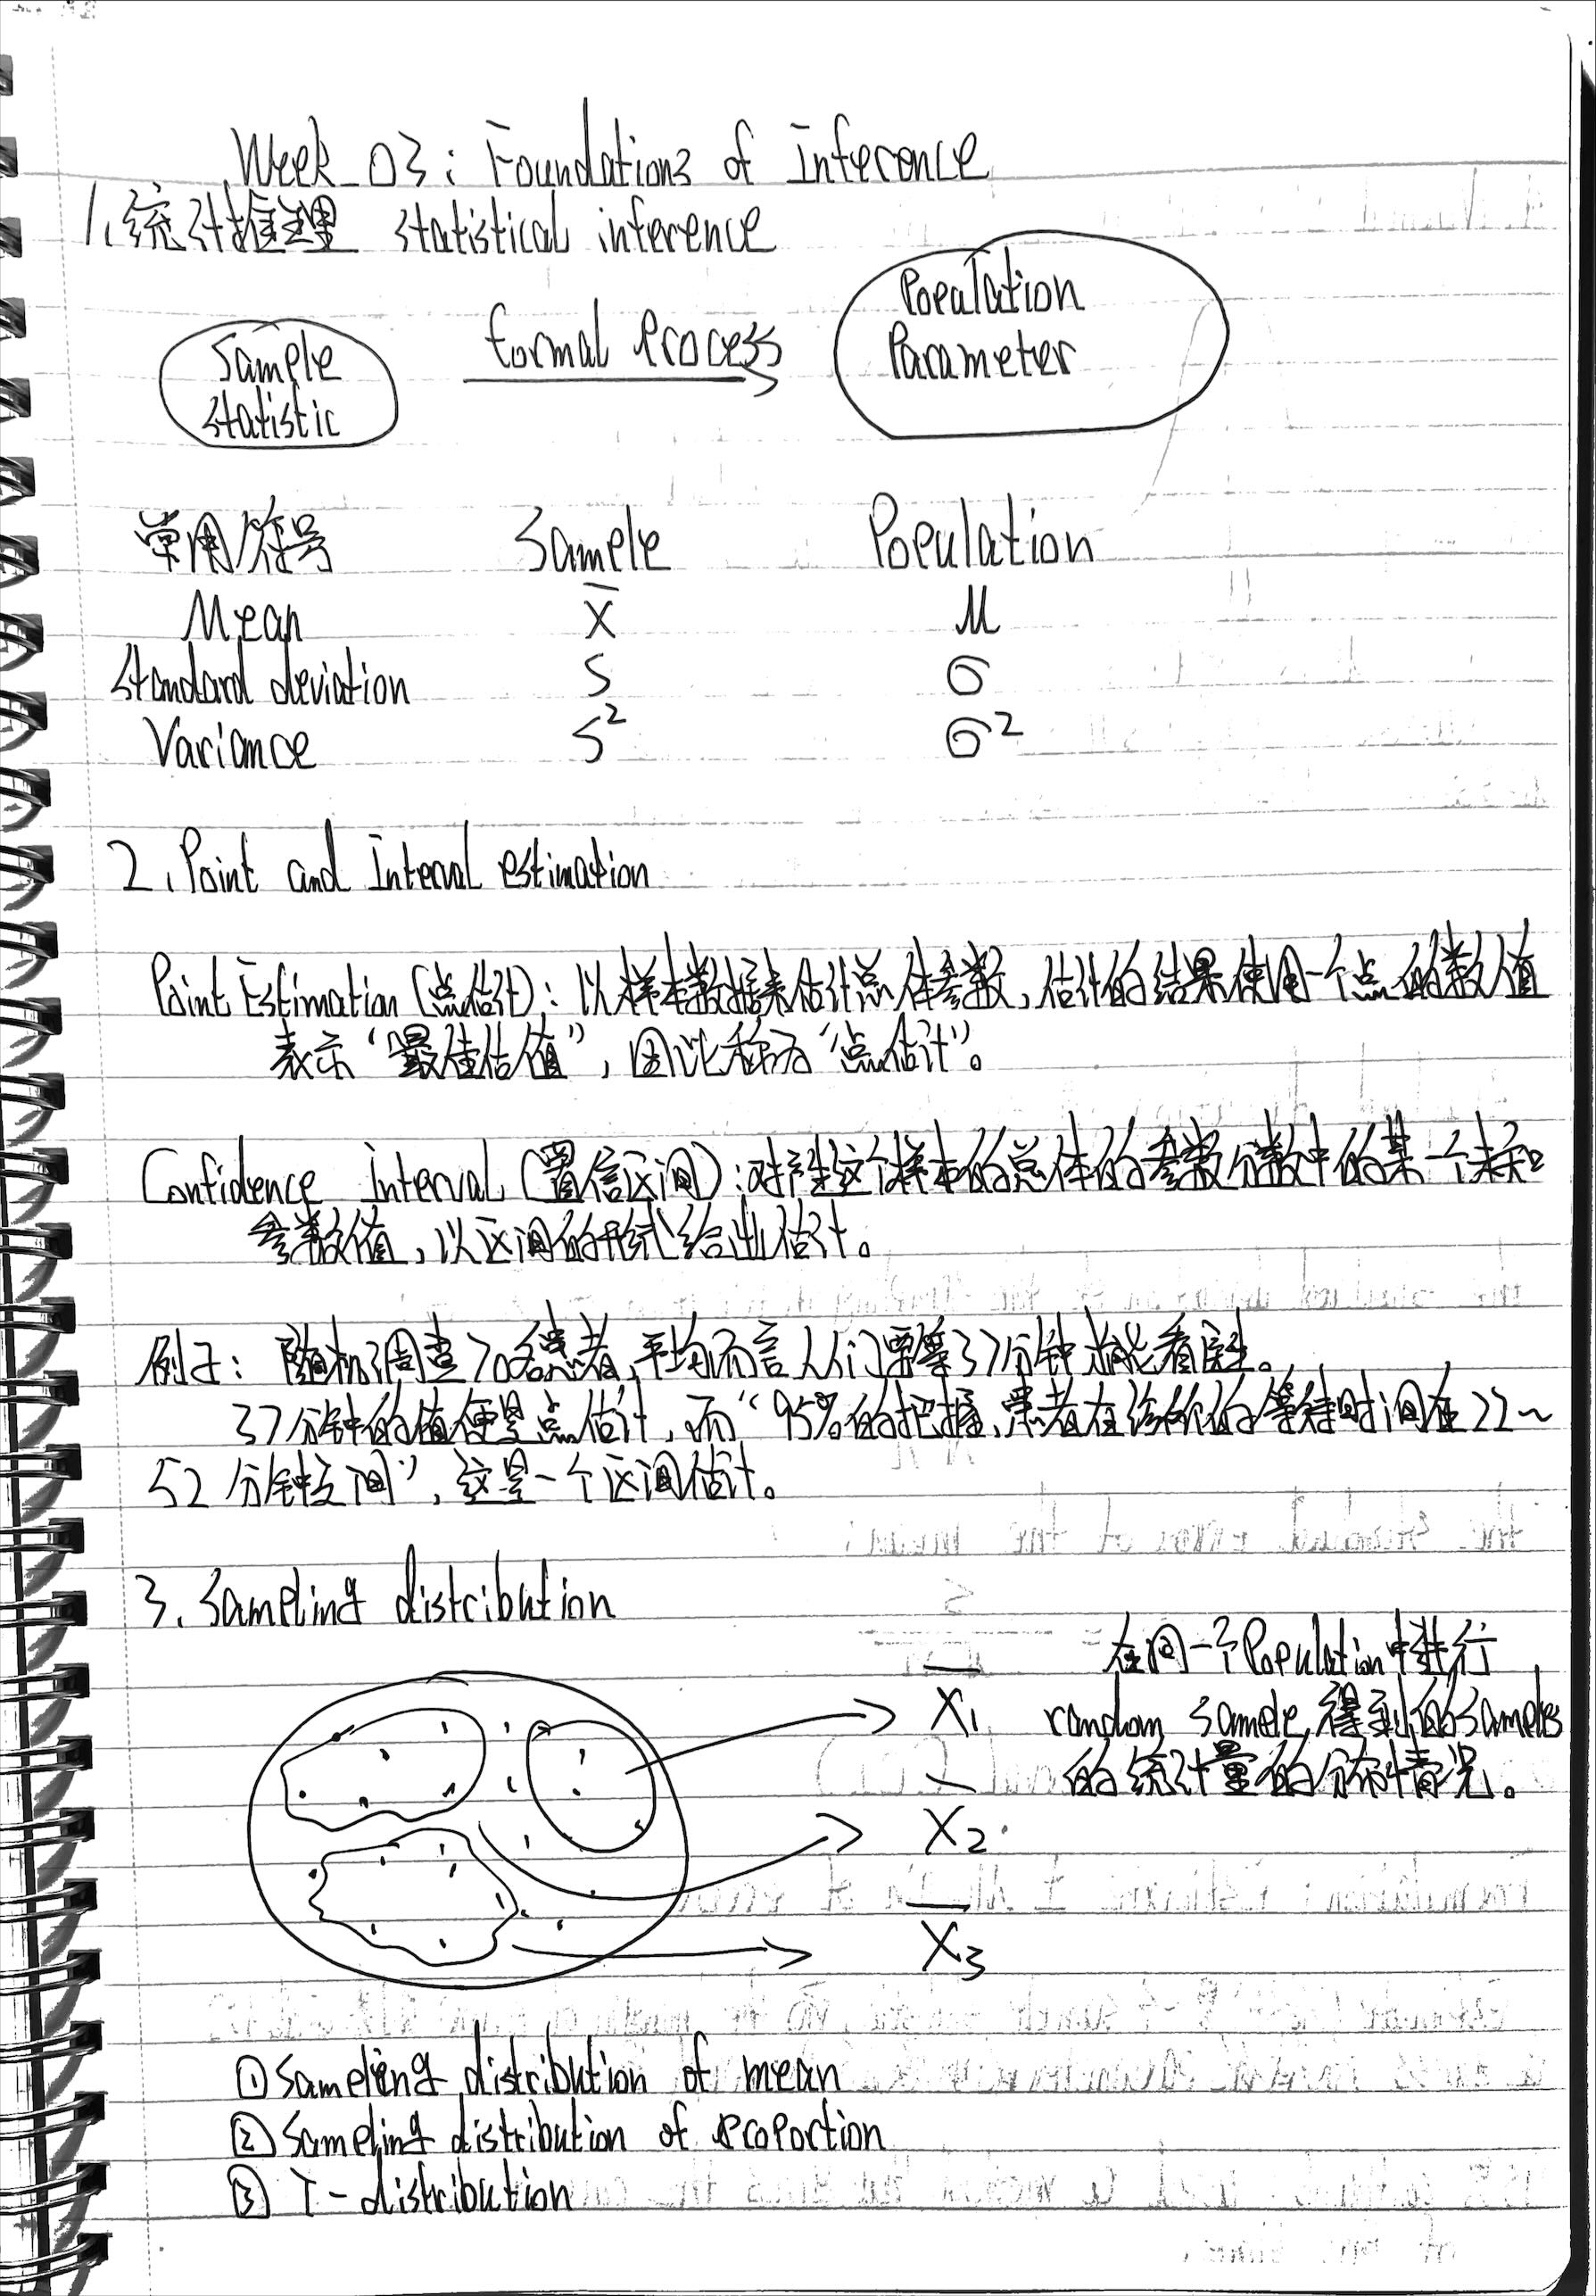 Week_03: Foundations of Inference
1.统计推理 statistical inference
Sample
statistic
formal process
Population
Parameter
常用符号 Sample Population
Mean x̄ μ
Standard deviation s σ
Variance s² σ²
2. Point and Interval estimation
Point Estimation (点估计): 以样本数据来估计总体参数, 估计的结果使用一个点的数值
表示“最佳估值”, 因此称为“点估计”。
Confidence Interval (置信区间): 对产生这个样本的总体的参数分数中的某一个未知
参数值, 以区间的形式给出估计。
例子: 随机调查70名患者, 平均而言人们要等37分钟才能看医生。
37分钟的值便是点估计, 而“95%的把握, 患者在诊所的等待时间在22~
52分钟之间”, 这是一个区间估计。
3. Sampling distribution
在同一个Population中进行
random sample, 得到的samples
的统计量的分布情况。
X̄1
X̄2
X̄3
① Sampling distribution of mean
② Sampling distribution of proportion
③ T-distribution